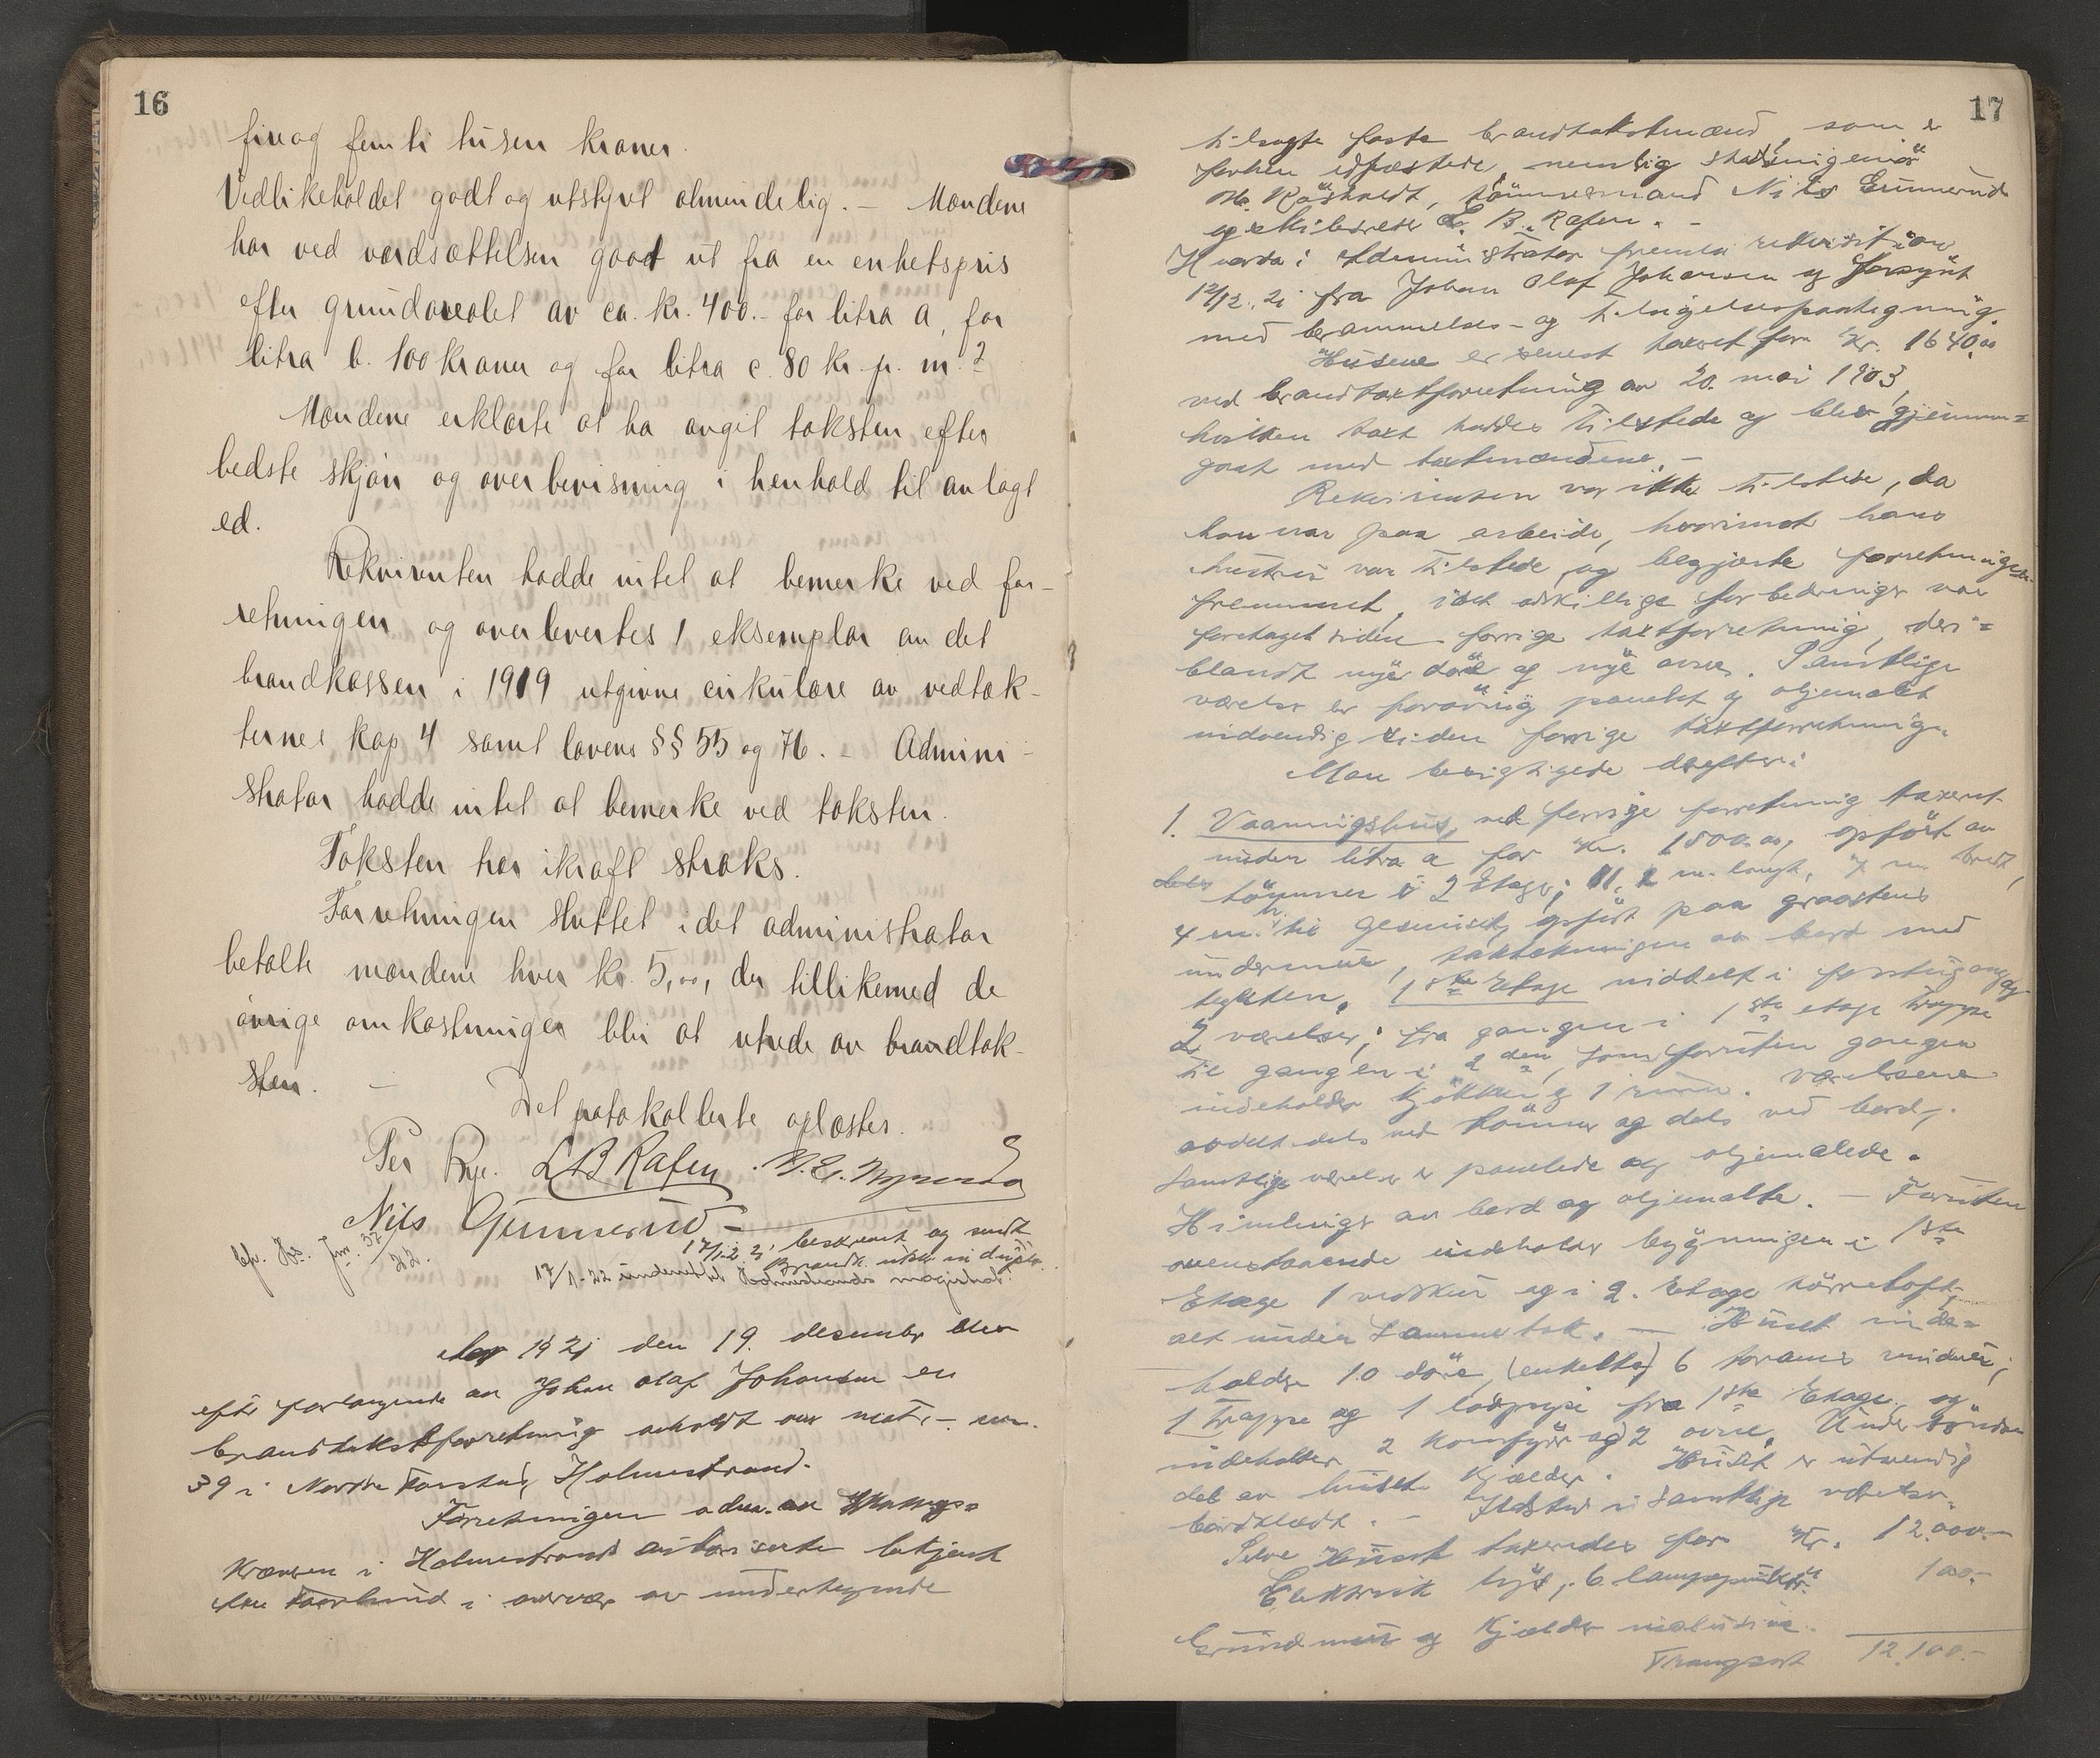 16
fireog femti tusen kroner.
Vedlikeholdet godt og utstyret almindelig. – Mændene
har ved værdsættelsen gaat ut fra en enhetspris
efter grundarealet av ca. kr. 400.- for litra a, for
litra b. 100 kroner og for litra c. 80 kr. pr. m.²
Mændene erklærte at ha avgit taksten efter
bedste skjøn og overbevisning i henhold til avlagt
ed.
Rekvirenten hadde intet at bemerke ved for-
retningen og overlevertes 1 eksemplar av det
brandkassen i 1919 utgivne cirkulære av vedtæk-
ternes kap 4 samt lovens §§ 55 og 76. – Admini-
strator hadde intet at bemerke ved taksten.
Taksten har ikraft straks.
Forretningen sluttet idet administrator
betalte mændene hver kr. 5,00, der tillikemed de
øvrige omkostninger blir at utrede av brandtak-
sten. –
Det protokollerte oplæstes.
Per Rye. L B Rafen.
Nils Gunnerud –
17/12 21 beskrevet og sendt
Brandk. i duplo.
17/1-22
Aar 1921 den 19. desember blev
efter forlangende av Johan Olaf Johansen en
brandtakstforretning avholdt over matr. – nr.
39 i Nordre Forstad, Holmestrand.
Forretningen adm. av
i Holmestrand autoriserte betjent
i overvær av undertegnede
17
tilsagte faste brandtakstmænd, som er
forhen edfæstede, nemlig stadsingeniør
tømmermand Nils Gunnerud
og skibsreder L. B. Rafen. –
Hvorda: Administrator fremla rekvisition
12/12. 21 fra Johan Olaf Johansen og forsynt
med berammelses- og tilsigelsespaategning.
Husene er senest taxeret for Kr. 1640.00
ved brandtaxtforretning av 20. mai 1903,
hvilken taxt havdes tilstede og blev gjennem=
gaat med taxtmændene. –
Rekvirenten var ikke tilstede, da
han var paa arbeide, hvorimot hans
hustru var tilstede og begjærte forretningen
fremmet, idet adskillige forbedringer var
foretaget siden forrige taxtforretning, der=
blandt nye døre og nye ovne. Samtlige
værelser er forøvrig panelet og oljemalet
indvendig siden forrige taxtforretning.
Man besigtigede derefter:
1. Vaaningshus, ved forrige forretning taxeret
under litra a for Kr. 1500.00, opført av
dels tømmer i 2 Etager; 11,2 m. langt, 7 m. bredt,
4 m. til gesimsen, opført paa graastens
undermur, taktækningen av bord med
teglsten. 1ste Etage inddelt i forstugang og
2 værelser; fra gangen i 1ste etage trappe
til gangen i 2den, som foruten gangen
indeholder kjøkken og 1 rum. Værelserne
avdelt dels ved tømmer og dels ved bord,
Samtlige værelser er panelede og oljemalede.
Himlinger av bord og oljemalte. – Foruten
ovenstaaende indeholder bygningen i 1ste
Etage 1 vedskur og i 2. Etage tørreloft,
alt under samme tak. – Huset inde=
holder 10 døre (enkelte) 6 vinduer;
1 trappe og 1 fra 1ste Etage og
indeholder 2 komfyrer og 2 ovne. Under søndre
del av huset kjælder. Huset er utvendig
bordklædt. – Ildsted i samtlige værelser.
Selve Huset taxeredes for Kr. 12.000.–
Elektrisk lys, 6 lampepunkter 100.–
Grundmur og kjælder
Transport 12.100.–